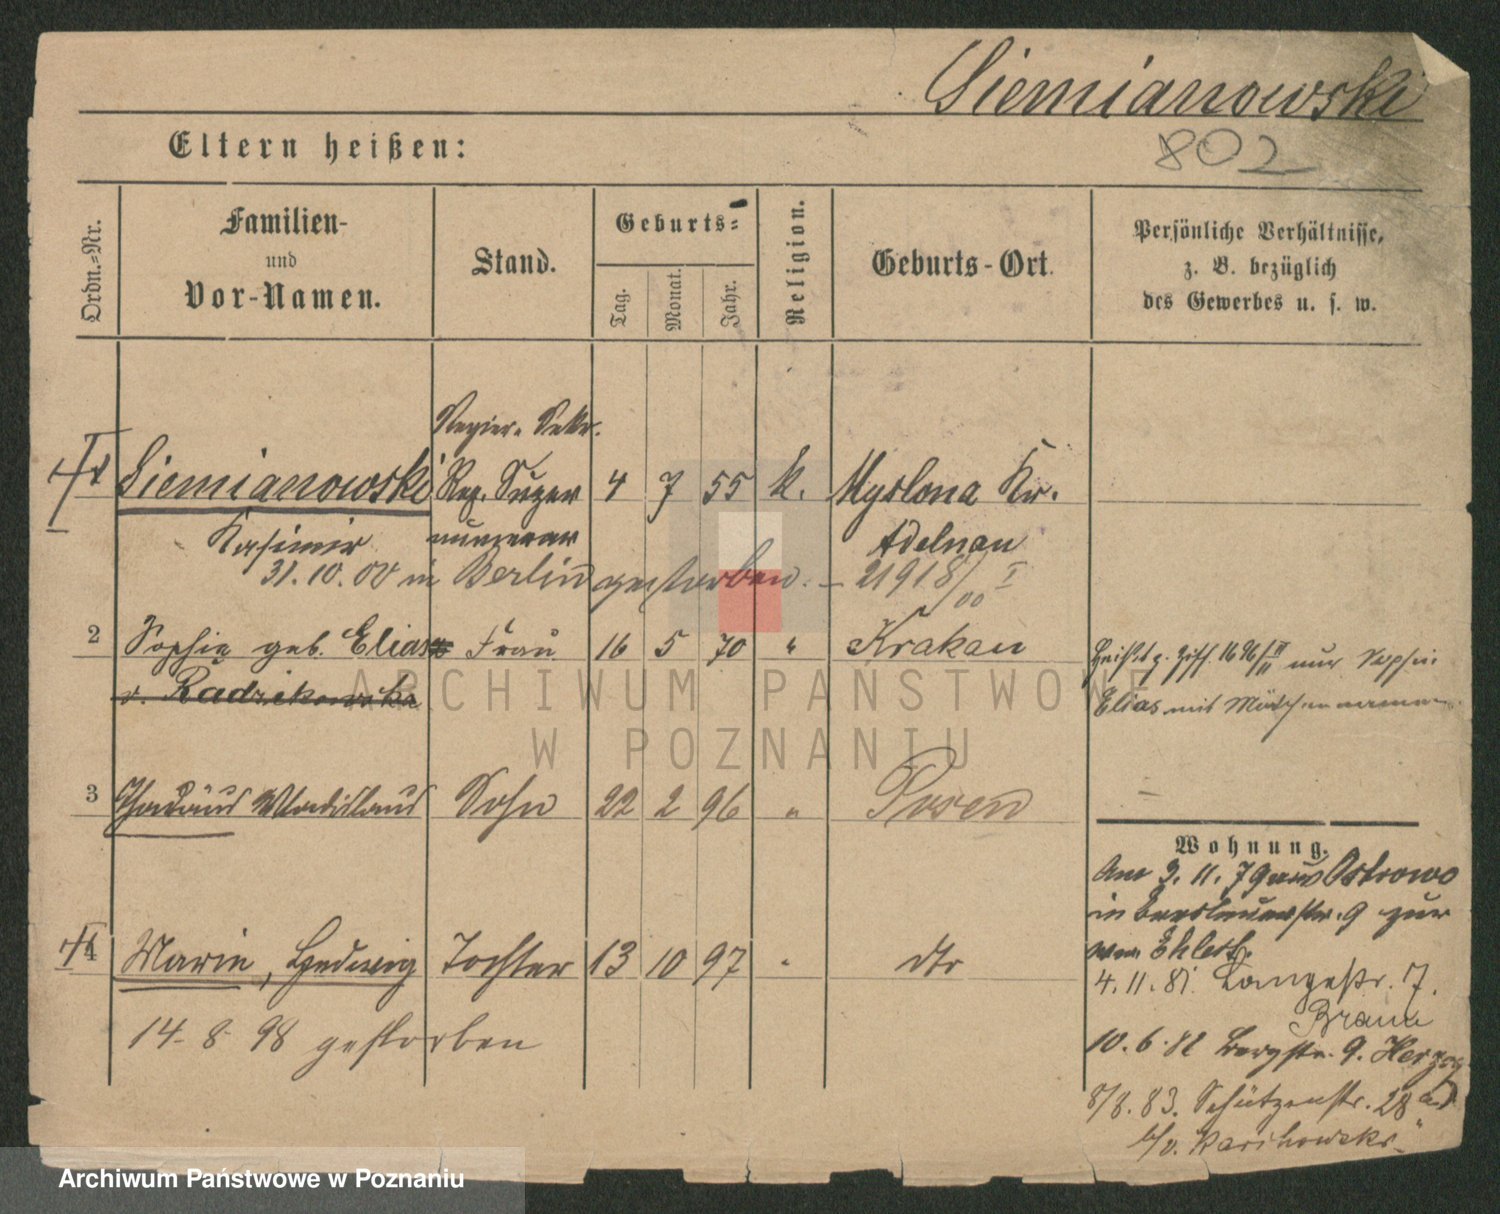 Siemianowski
802
Eltern heißen:
Ordn.-Nr.
Familien-
und
Vor-Namen.
Stand.
Geburts-
Tag.
Monat.
Jahr.
Religion.
Geburts-Ort.
Persönliche Verhältnisse,
z. B. bezüglich
des Gewerbes u. s. w.
Regier. Sekr.
Siemianowski Reg. Super 4 7 55 k. Myslona Kr.
Kasimir numerar Adelnau
31.10.00 in Berlin gestorben. - 21918/00 I
2 Sophie geb. Elias Frau 16 5 70 " Krakau
v. Radzikowska
nur Sophie
Elias mit Mädchennamen
3 Thadäus Wladislaus Sohn 22 2 96 " Posen
4 Marie, Hedwig Tochter 13 10 97 " dto
14-8-98 gestorben
Wohnung.
Am 3.11.79 aus Ostrowo
in Breslauerstr. 9 zur
4.11.81. Langestr. 7.
Braun
10.6.82 Bergstr. 9. Herzog
8/8.83. Schützenstr. 28a
b/v. Karihowski
ARCHIWUM PAŃSTWOWE
W POZNANIU
Archiwum Państwowe w Poznaniu